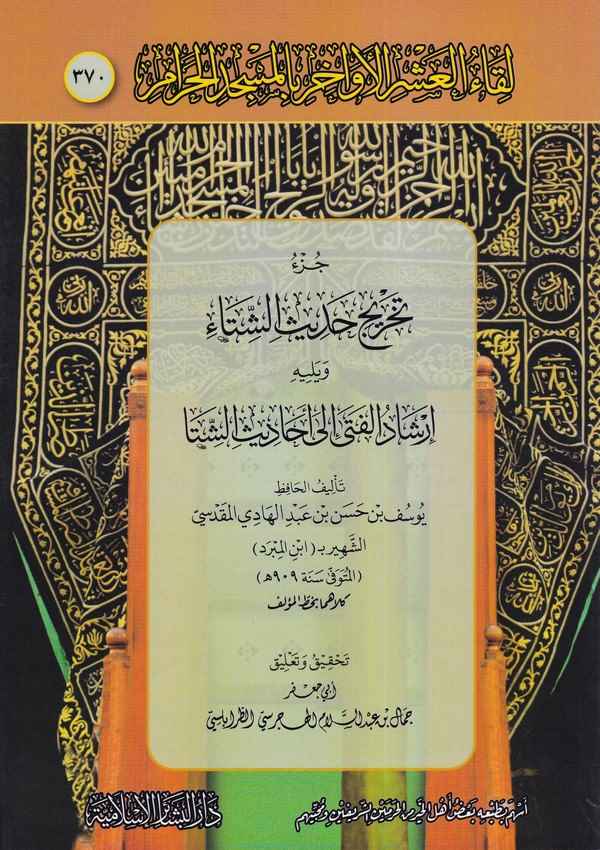 لِقَاءُ العَشْرِ الأَوَاخِرِ بِالْمَسْجِدِ الحَرَامِ
٣٧٠
جُزْءُ
تَخْرِيج حَدِيث الشِّتَاءِ
وَيَلِيهِ
إِرْشَادُ الْفَتَى إِلَى أَحَادِيثِ الشِّتَا
تَأْلِيفُ الحَافِظِ
يُوسُف بْن حَسَن بْن عَبْدِ الهَادِي المَقْدَسِيِّ
الشَّهِير بـ (ابْن المِبْرَد)
(المُتَوَفَّى سَنَة ٩٠٩هـ)
كلاهما بخط المؤلف
تَحْقِيق وَتَعْلِيق
أبي جعفر
جمال بن عبد السلام الهجرسي الطرابلسي
أَسْهَمَ بِطَبْعِهِ بَعْضُ أَهْلِ الخَيْرِ مِنَ الحَرَمَيْنِ الشَّرِيفَيْنِ وَمُحِبِّيهِم
دَارُ البَشَائِر الإِسْلَامِيَّة